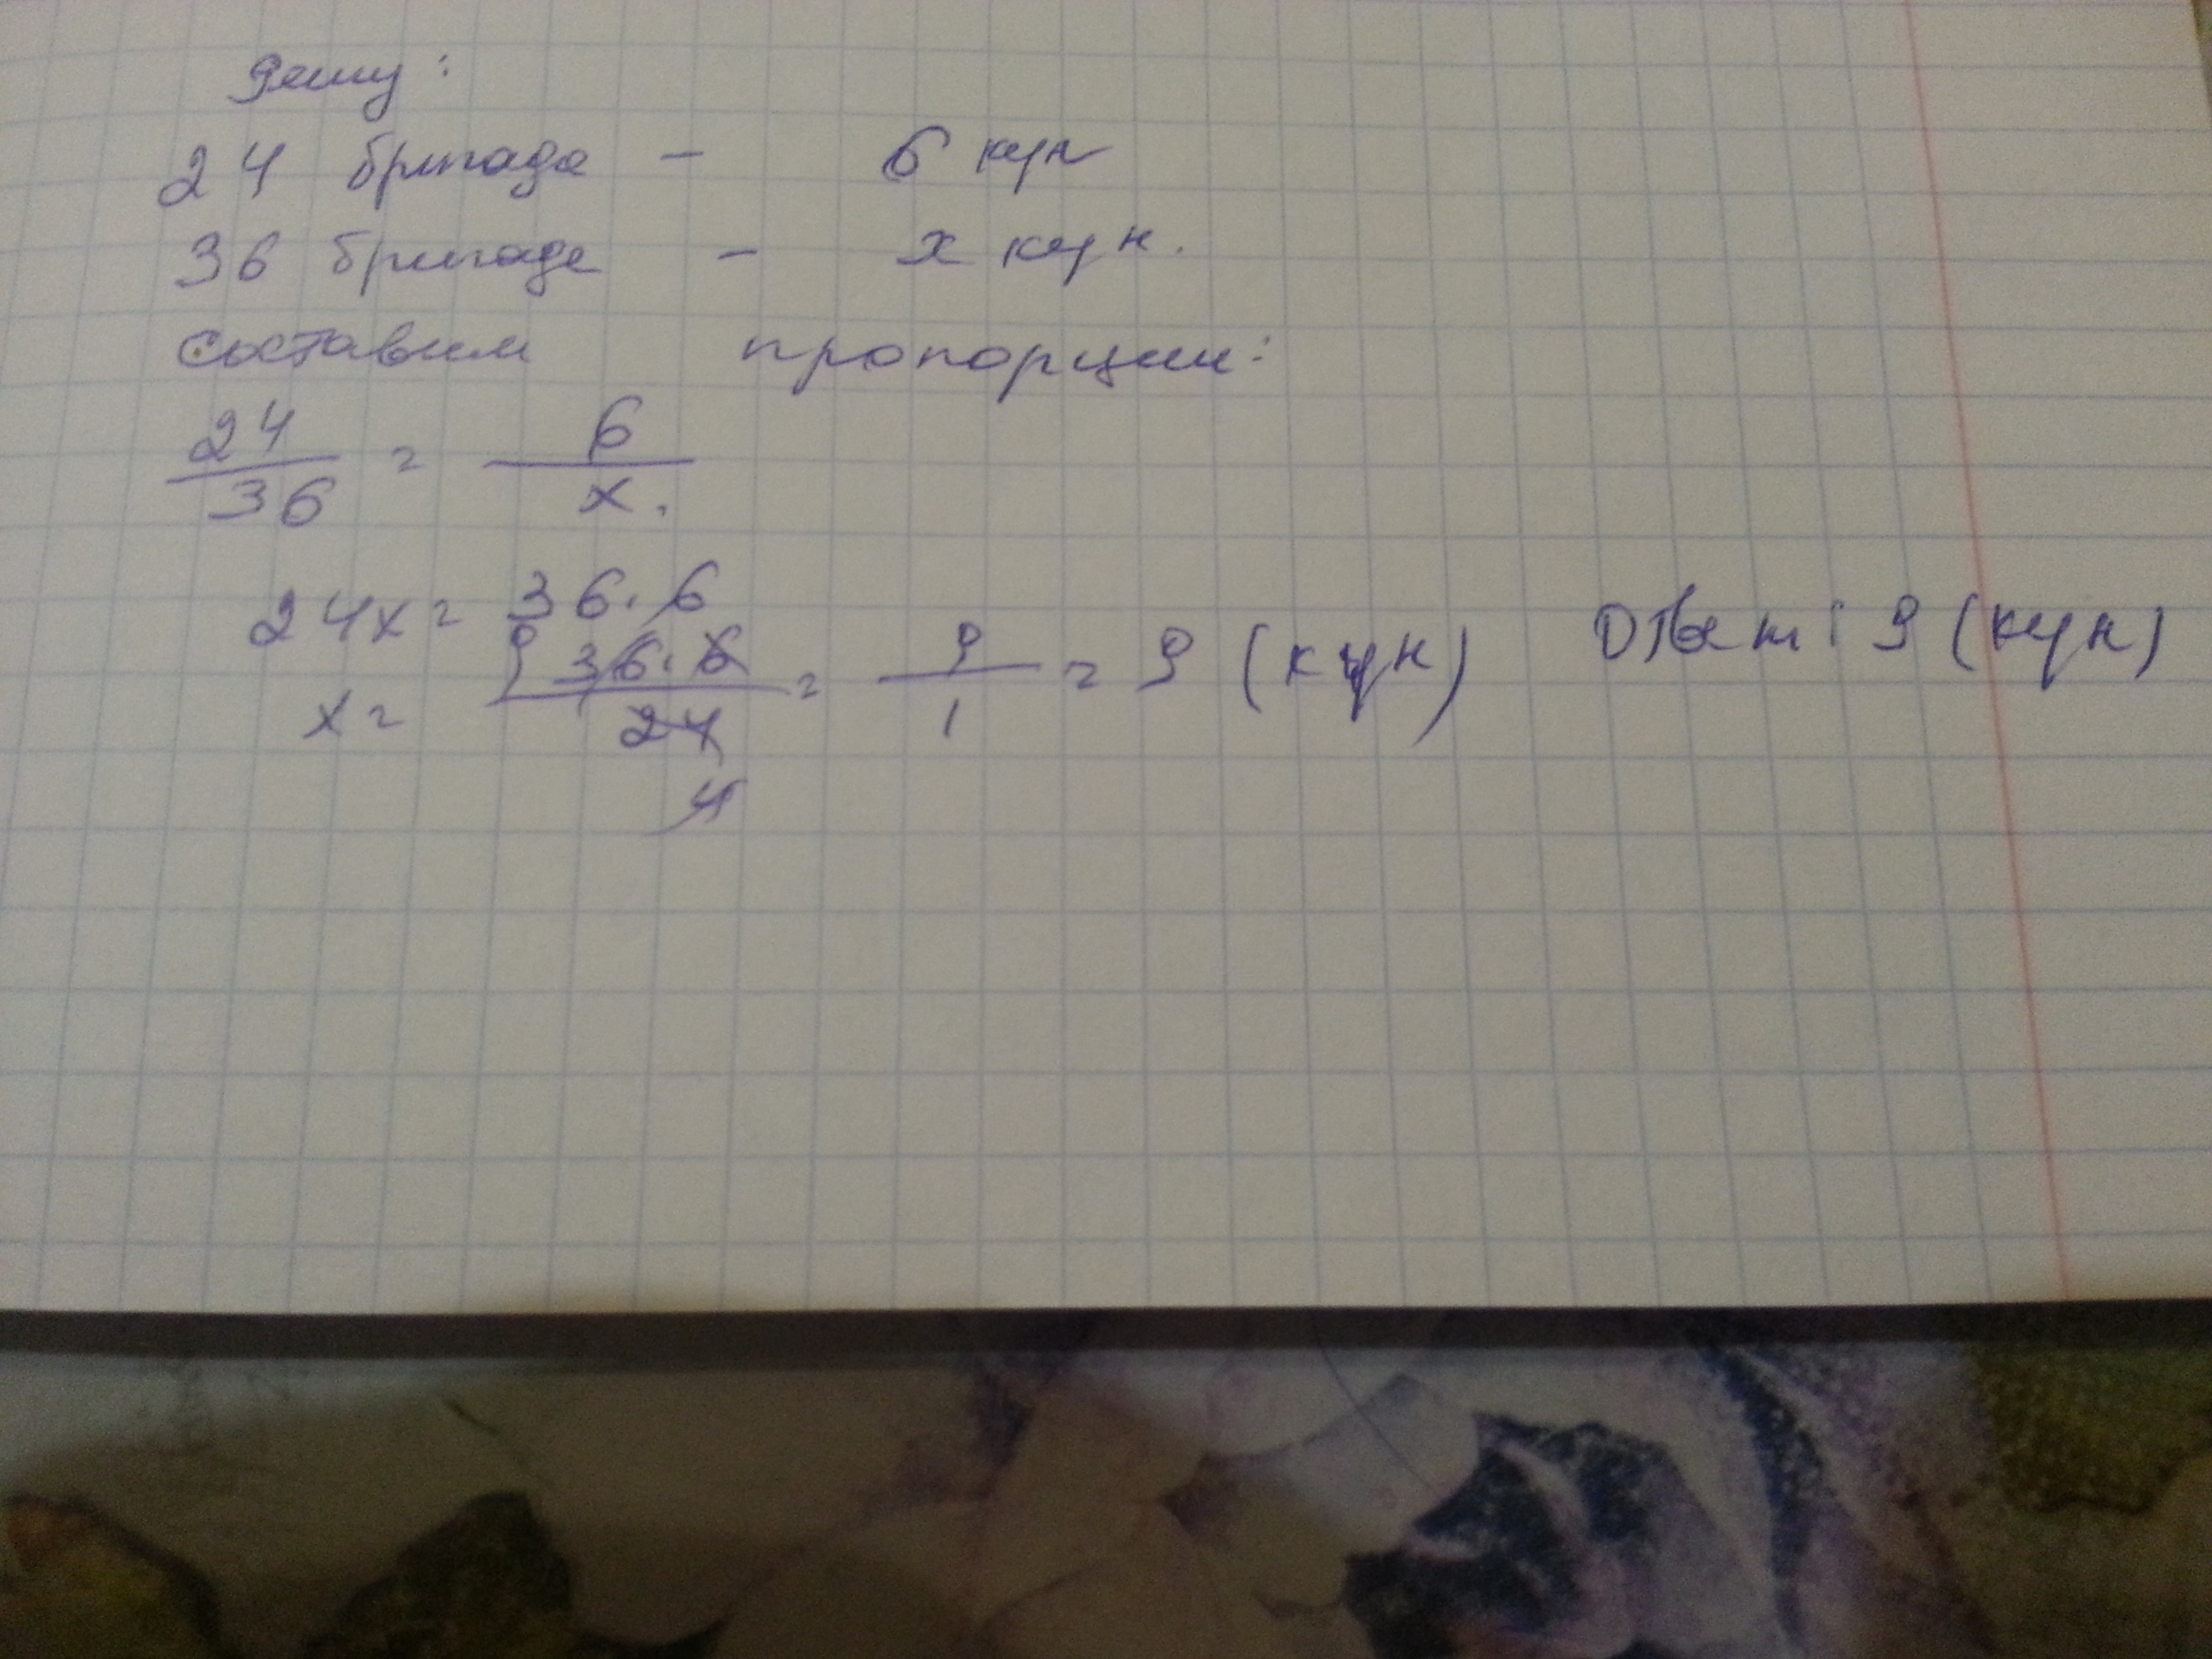 Решу:
24 бригада - 6 кун
36 бригаде - x кун.
составим пропорции:
24/36 = 6/x.
24x = 36·6
x = 36·6/24 = 9/1 = 9 (кун) Ответ: 9 (кун)
9
4